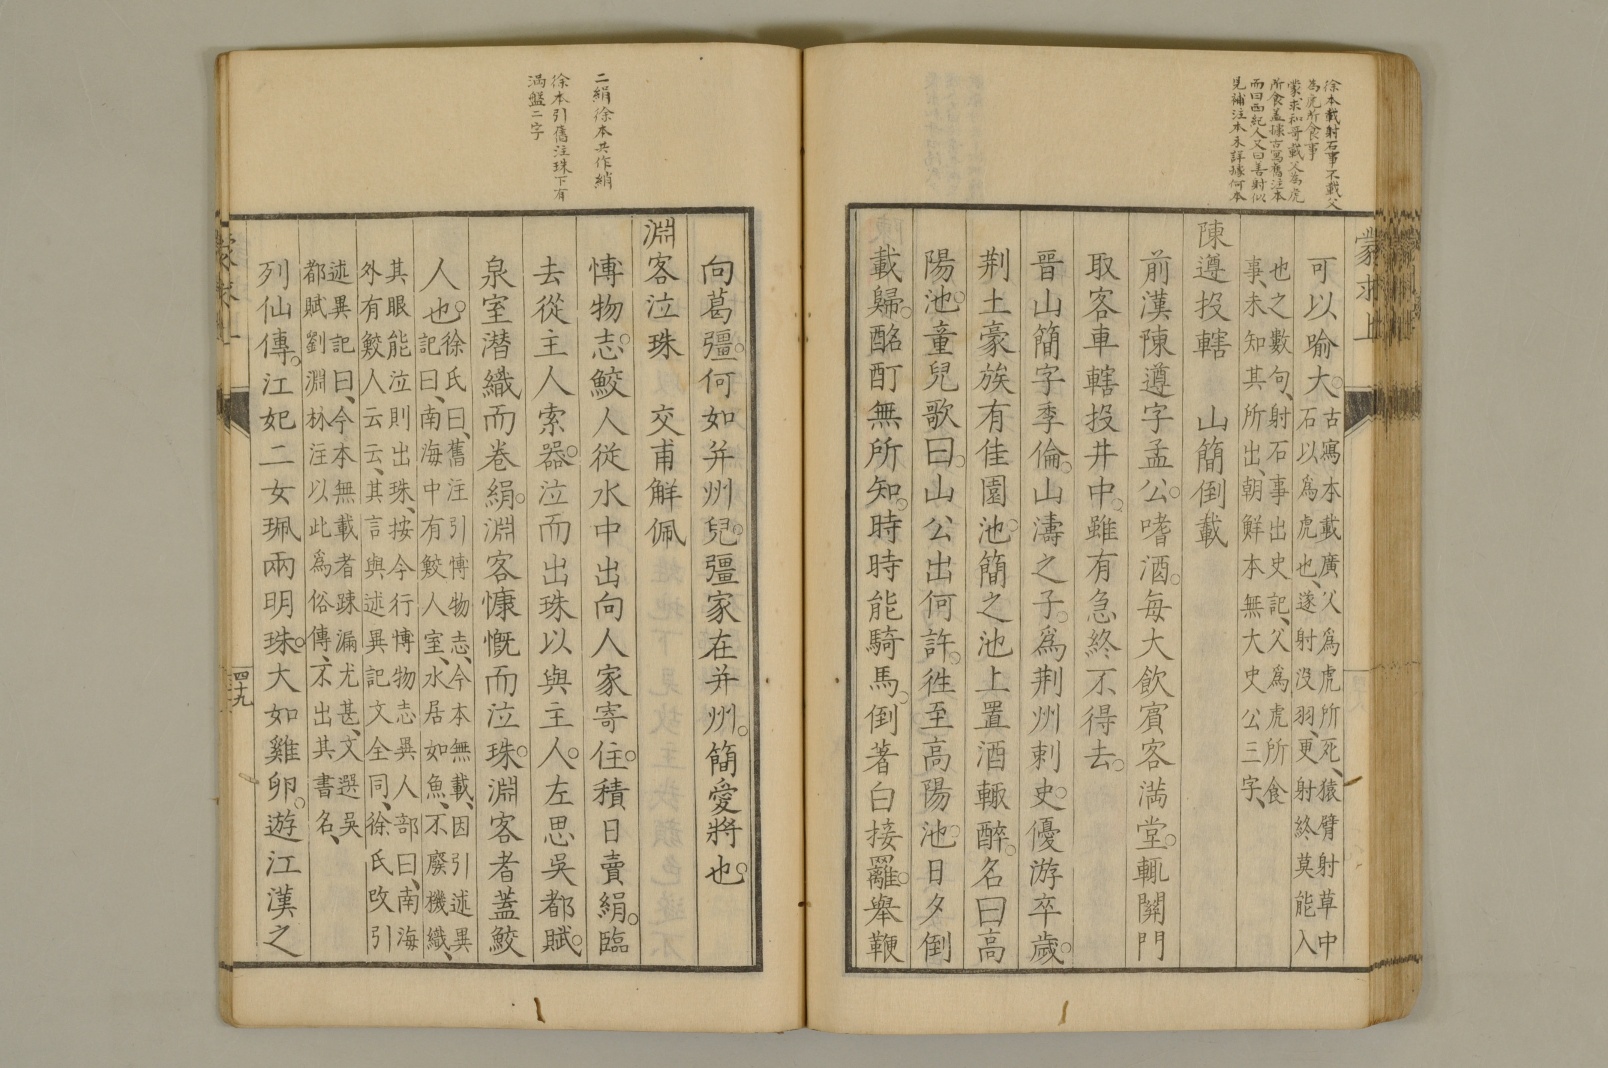 徐本載射石事不載父
為虎所食事
蒙求和哥載父為虎
所食蓋據古寫舊注本
而曰西紀人又曰善射似
見補注本未詳據何本
蒙求上
可以喻大。古寫本載廣父爲虎所死、猿臂射草中
石以爲虎也、遂射没羽、更射終莫能入
也之數句、射石事出史記、父爲虎所食
事、未知其所出、朝鮮本無大史公三字、
陳遵投轄　山簡倒載
前漢陳遵字孟公。嗜酒。每大飲賓客満堂。輒關門
取客車轄投井中。雖有急終不得去。
晉山簡字季倫。山濤之子。爲荆州刺史。優游卒歳。
荆土豪族有佳園池。簡之池上置酒輙醉。名曰高
陽池。童兒歌曰。山公出何許。徃至高陽池。日夕倒
載歸。酩酊無所知。時時能騎馬。倒著白接䍦。舉鞭
二絹徐本共作綃
徐本引舊注珠下有
満盤二字
向葛彊。何如并州兒。彊家在并州。簡愛將也。
淵客泣珠　交甫觧佩
愽物志。鮫人從水中出向人家寄住。積日賣絹。臨
去從主人索器。泣而出珠以與主人。左思吳都賦。
泉室潜織而卷絹。淵客慷慨而泣珠。淵客者蓋鮫
人也。徐氏曰、舊注引愽物志、今本無載、因引述異
記曰、南海中有鮫人室、水居如魚、不廢機織、
其眼能泣則出珠、按今行博物志異人部曰、南海
外有鮫人云云、其言與述異記文全同、徐氏改引
述異記曰、今本無載者踈漏尤甚、文選吳
都賦劉淵林注以此爲俗傳、不出其書名、
列仙傳。江妃二女珮兩明珠。大如雞卵。遊江漢之
蒙求上
四十九